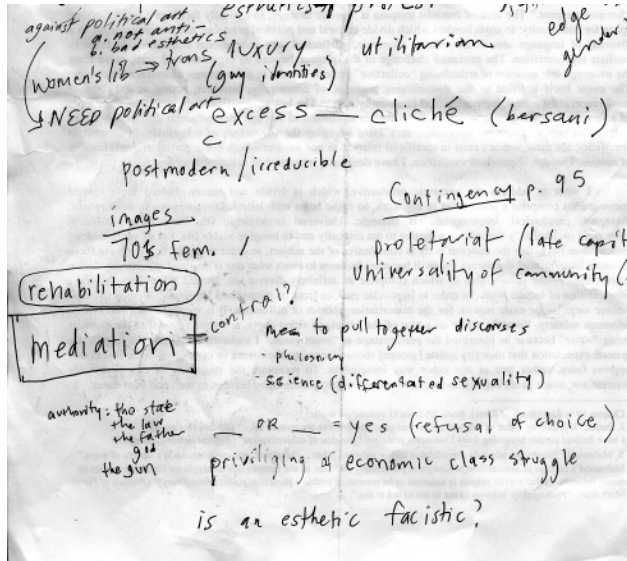 against political art
a. not anti-
b. bad esthetics
luxury
utilitarian
edge
gender
women's lib → trans
(guy identities)
↳ NEED political art
excess — cliché (bersani)
postmodern / irreducible
Contingency p. 95
images
70's fem. /
proletariat (late capit
universality of community (
rehabilitation
mediation = control?
mean to pull together discourses
philosophy
science (differentiated sexuality)
authority: the state
the law
the father
god
the gun
__ OR __ = yes (refusal of choice)
priviliging of economic class struggle
is an esthetic facistic?